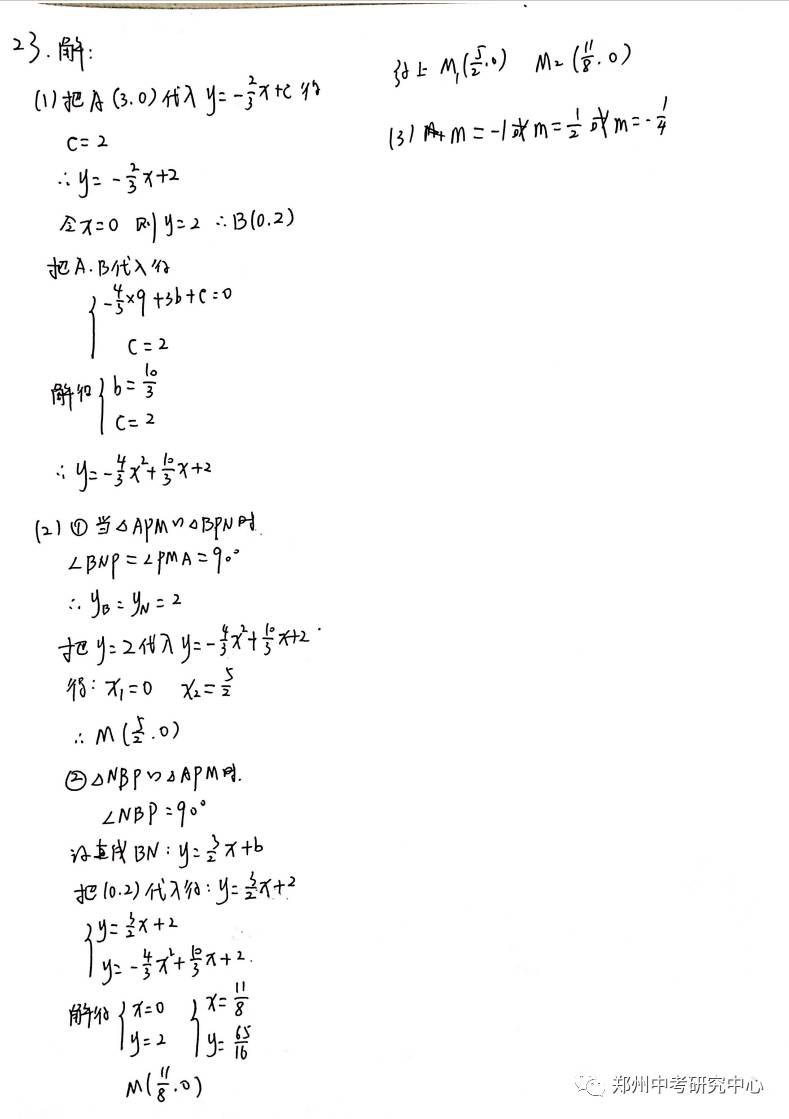 23. 解:
(1) 把 A (3.0) 代入 y = -2/3x + c 得
c = 2
∴ y = -2/3x + 2
令 x = 0 则 y = 2 ∴ B(0.2)
把 A.B 代入得
{ -4/3×9 + 3b + c = 0
c = 2
解得 { b = 10/3
c = 2
∴ y = -4/3x² + 10/3x + 2
(2) ① 当 △APM∽△BPN时.
∠BNP = ∠PMA = 90°
∴ yB = yN = 2
把 y = 2 代入 y = -4/3x² + 10/3x + 2
得: x₁ = 0 x₂ = 5/2
∴ M (5/2 . 0)
② △NBP∽△APM时.
∠NBP = 90°
设直线 BN : y = 3/2x + b
把 (0.2) 代入得: y = 3/2x + 2
{ y = 3/2x + 2
y = -4/3x² + 10/3x + 2.
解得 { x = 0 { x = 11/8
y = 2 y = 65/16
M (11/8 . 0)
综上 M₁ (5/2 . 0) M₂ (11/8 . 0)
(3) m = -1 或 m = 1/2 或 m = -1/4
郑州中考研究中心